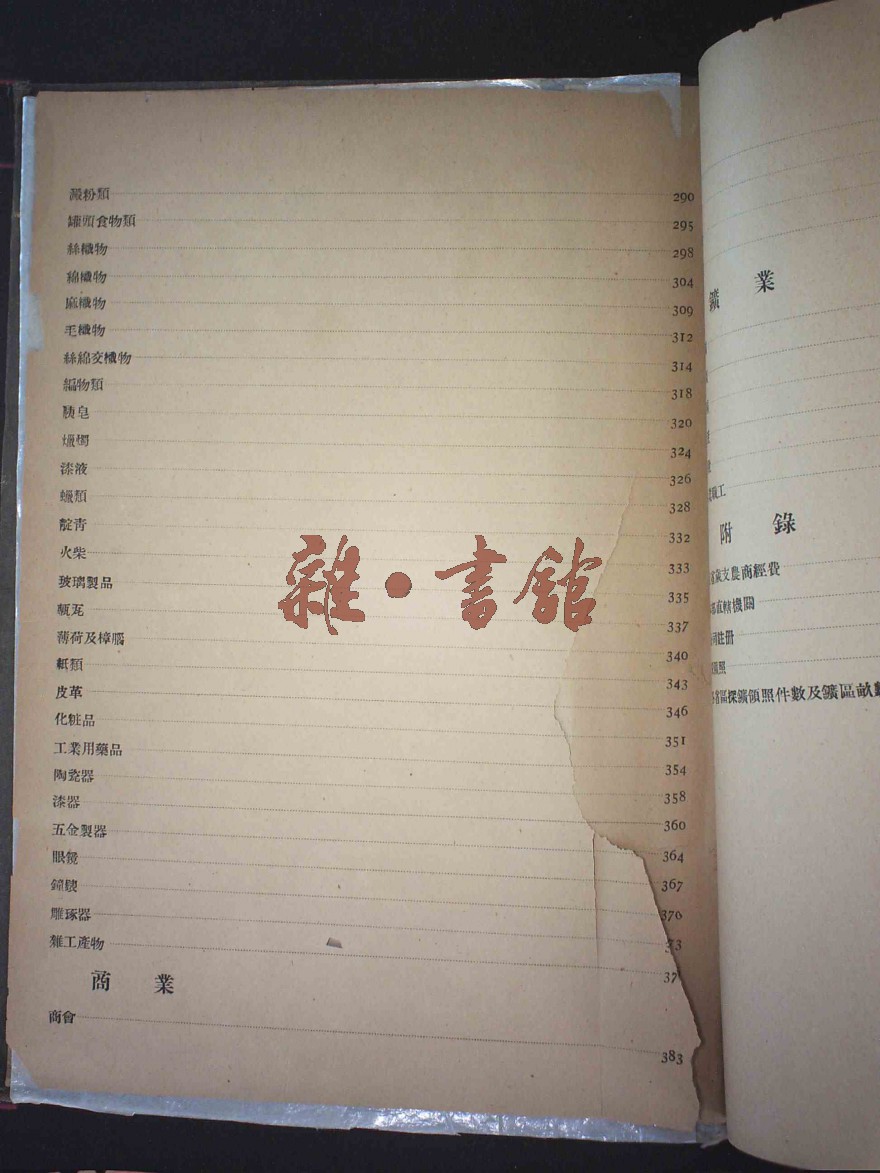 澱粉類 290
罐頭食物類 295
絲織物 298
綿織物 304
麻織物 309
毛織物 312
絲綿交織物 314
編物類 318
胰皂 320
爉燭 324
漆液 326
蠟類 328
靛青 332
火柴 333
玻璃製品 335
甎瓦 337
薄荷及樟腦 340
紙類 343
皮革 346
化粧品 351
工業用藥品 354
陶瓷器 358
漆器 360
五金製器 364
眼鏡 367
鐘錶 370
雕琢器 73
雜工產物 37
商業
商會 383
雜·書館
鑛業
工
附錄
歲支農商經費
直轄機關
註册
照
省區探鑛領照件數及鑛區畝數